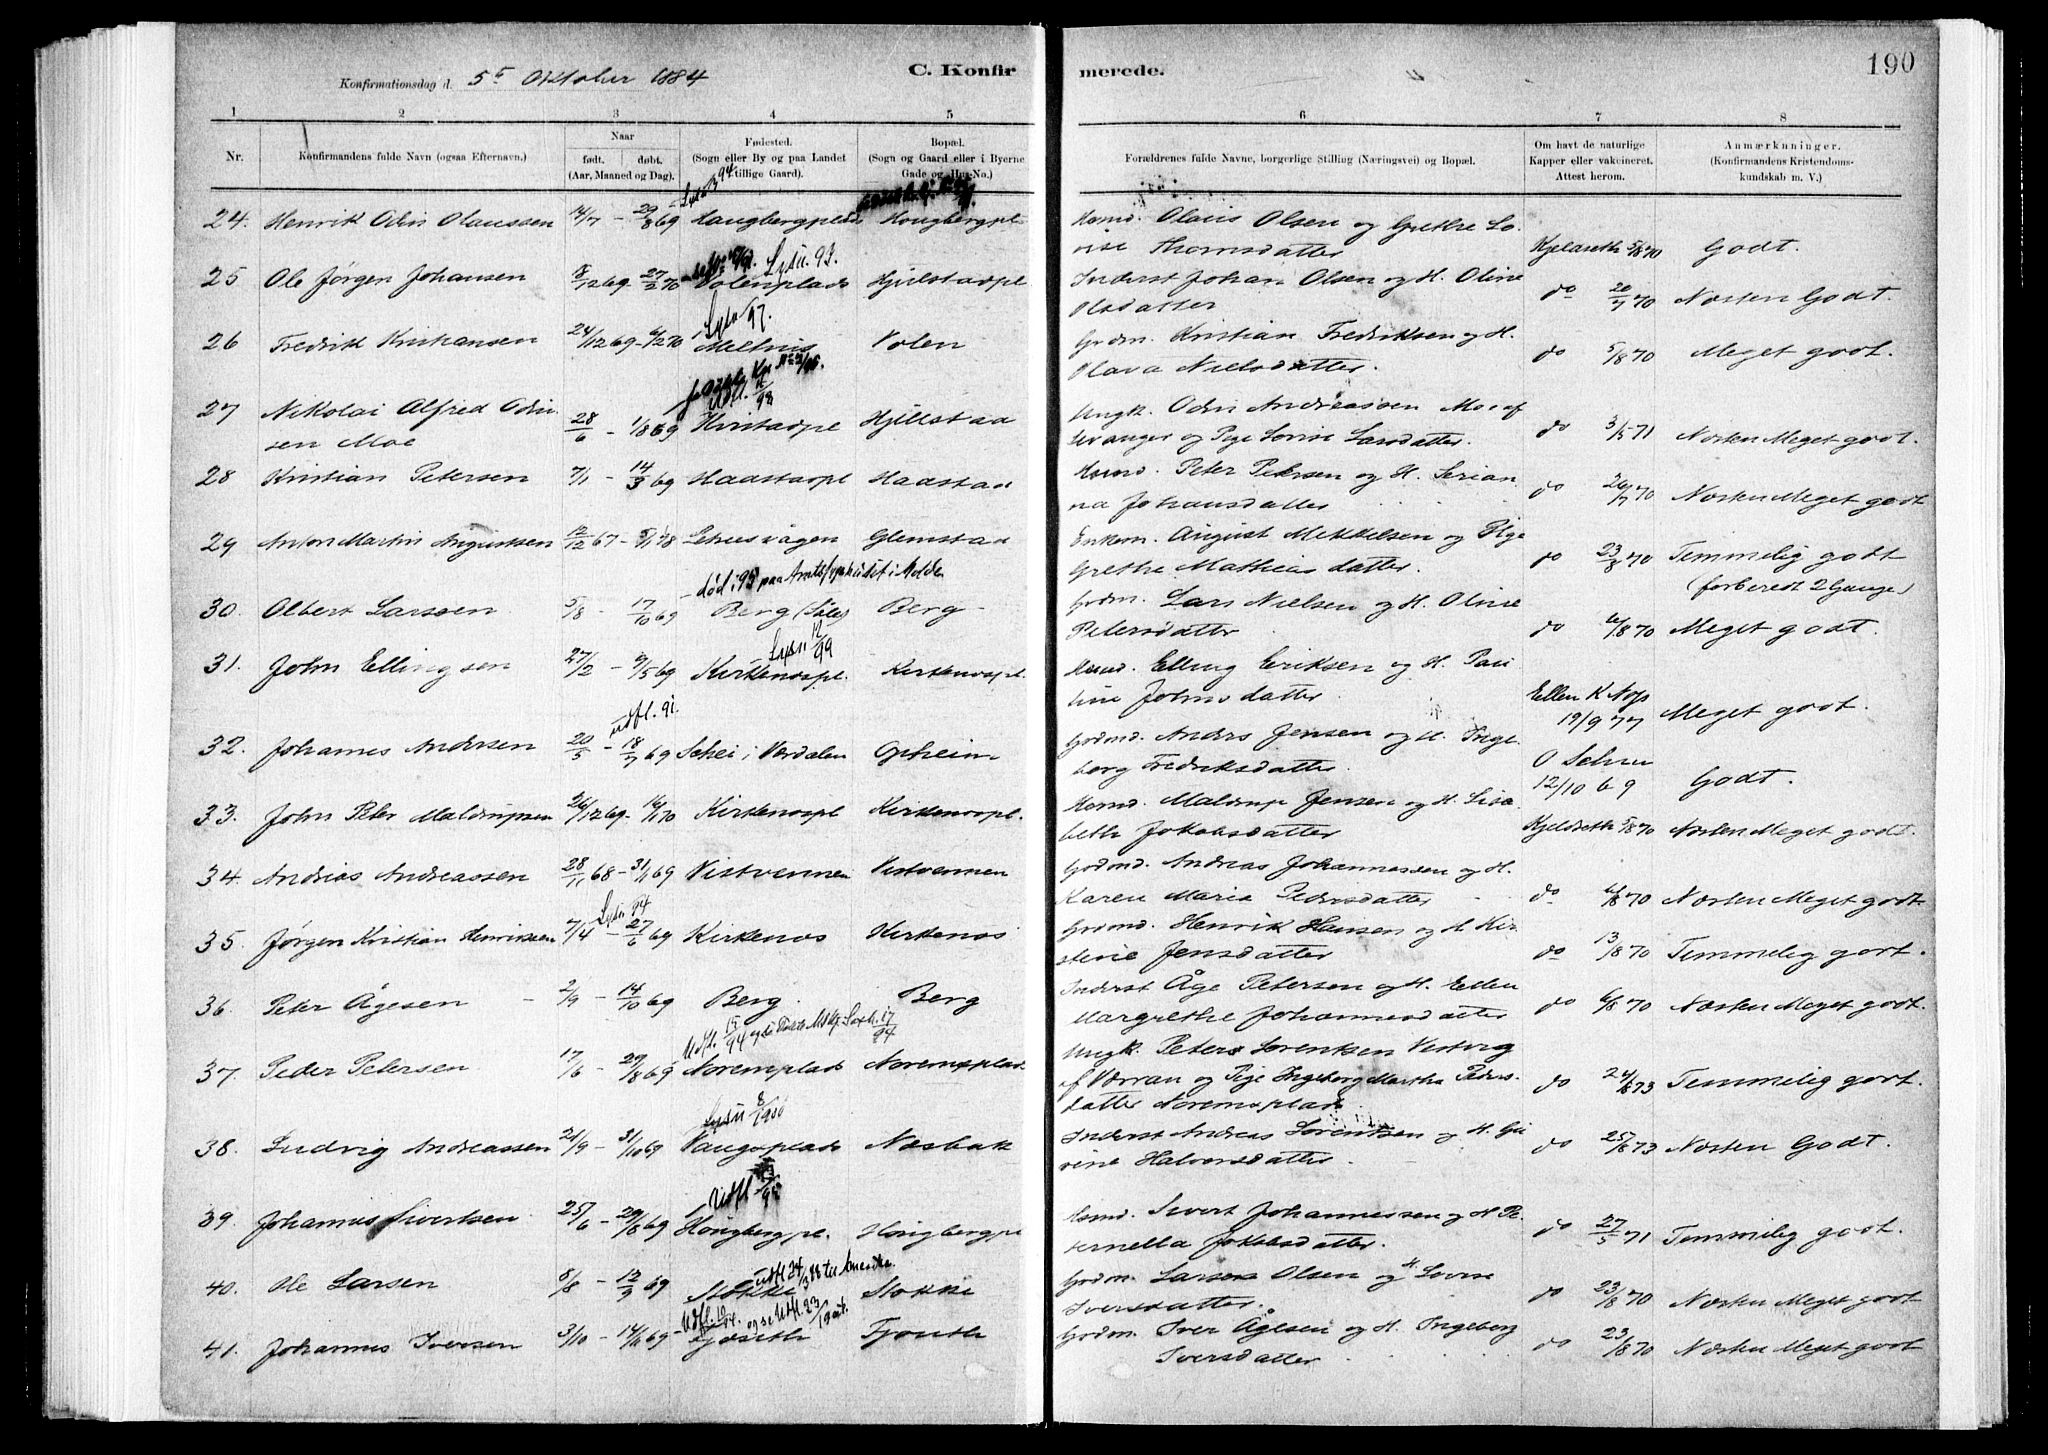 190
Konfirmationsdag d. 5t Oktober 1884
C. Konfirmerede.
1 2 3 4 5 6 7 8
Nr. Konfirmandens fulde Navn (ogsaa Efternavn.) Naar født. døbt. (Aar, Maaned og Dag). Fødested. (Sogn eller By og paa Landet tillige Gaard). Bopæl. (Sogn og Gaard eller i Byerne Gade og Hus-No.) Forældrenes fulde Navne, borgerlige Stilling (Næringsvei) og Bopæl. Om havt de naturlige Kapper eller vakcineret. Attest herom. Anmærkninger. (Konfirmandens Kristendomskundskab m. V.)
24. Henrik Odin Olaussen 14/7 – 29/8 69 Haugbergplads Hougbergpl Husmd. Olaus Olsen og Grethe Lo
vise Thomsdatter Kjelsreth 5/8 70 Godt.
Lysn. 93.
25 Ole Jørgen Johansen 8/12 69 – 27/2 70 Volenplads Hjelstadpl Inderst Johan Olsen og H. Oline
Olsdatter do 20/7 70 Næsten Godt.
Lysn 97.
26 Fredrik Kristiansen 24/12 69 – 6/2 70 Melhus Volen Grdm. Kristian Fredriksen og H.
Olava Nielsdatter. do 5/8 70 Meget godt.
27 Nikolai Alfred Odin
sen Moe 28/6 – 1/8 69 Hvistadpl Hjellstad Ungk. Odin Andreassen Moe af
Levanger og Pige Lovise Larsdatter. do 3/5 71 Næsten Meget godt.
28 Kristian Petersen 7/1 – 14/3 69 Haastadpl Haastad Husmd. Peter Petersen og H. Serian
na Johansdatter do 26/7 70 Næsten Meget godt
29 Anton Martin Augustsen 12/12 67 – 5/1 68 Glemstad Enkem. August Mikkelsen og Pige
Grethe Mathias datter. do 23/8 70 Temmelig godt
(forberedt 2 Gange)
død i 93 paa Amtssygehuset i Molde
30. Olbert Larsen 5/8 – 17/10 69 Berg Berg Grdm. Lars Nielsen og H. Oline
Petersdatter do 6/8 70 Meget godt.
Lysn 12/99
31. John Ellingsen 27/2 – 9/5 69 Kirkenespl. Kirkenespl. Husmd. Elling Eriksen og H. Pau
line Johnsdatter Ellen K Nøis
19/9 77 Meget godt.
udfl. 91.
32. Johannes Andersen 20/5 – 18/7 69 Schei i Værdalen Opheim Godmd. Anders Jensen og H. Inge
borg Fredriksdatter. O Schei
12/10 69 Godt.
33. John Peter Maldrupsen 26/12 69 – 16/1 70 Kirkenespl Kirkenespl. Husmd. Maldrup Jensen og H. Lisa
beth Jakobsdatter Kjelsreth 5/8 70 Næsten Meget godt.
34. Andreas Andreassen 28/11 68 – 31/1 69 Vistvennen Vistvennen Godmd. Andreas Johannessen og H.
Karen Maria Pedersdatter do 6/8 70 Næsten Meget godt
Lysn 94
35. Jørgen Kristian Henriksen 7/4 – 27/6 69 Kirkenes Kirkenes Grdmd. Henrik Hansen og H Kir
stine Jensdatter do 13/8 70 Temmelig godt.
36. Peter Ågesen 2/9 – 14/10 69 Berg. Berg Inderst Åge Petersen og H. Ellen
Margrethe Johannesdatter do 6/8 70 Næsten Meget godt.
37. Peder Petersen 17/6 – 29/8 69 Noremsplads Noremsplads Ungk. Peter Lorentsen Vestvig
af Værran og Pige Ingeborg Martha Peders
datter Noremsplads do 24/8 73 Temmelig godt.
Lysn 8/1900
38. Ludvig Andreassen 21/9 – 31/10 69 Vangsplads Næsbak Inderst Andreas Lorentsen og H. Gu
rine Halvorsdatter. do 25/8 73 Næsten Godt.
39. Johannes Sivertsen 25/6 – 29/8 69 Hougbergpl. Hougbergpl Husmd. Sivert Johannessen og H Pe
ternella Jakobsdatter. do 27/5 71 Temmelig godt.
udfl 24/3 88 til Amerika.
40. Ole Larsen 8/8 – 12/9 69 Stokke Stokke Godm. Lars Olsen og H. Lovise
Iversdatter. do 23/8 70 Næsten Meget godt
41. Johannes Iversen 3/10 – 14/11 69 Tjouth Godm. Iver Ågesen og H. Ingeborg
Iversdatter do 23/8 70 Næsten Meget godt